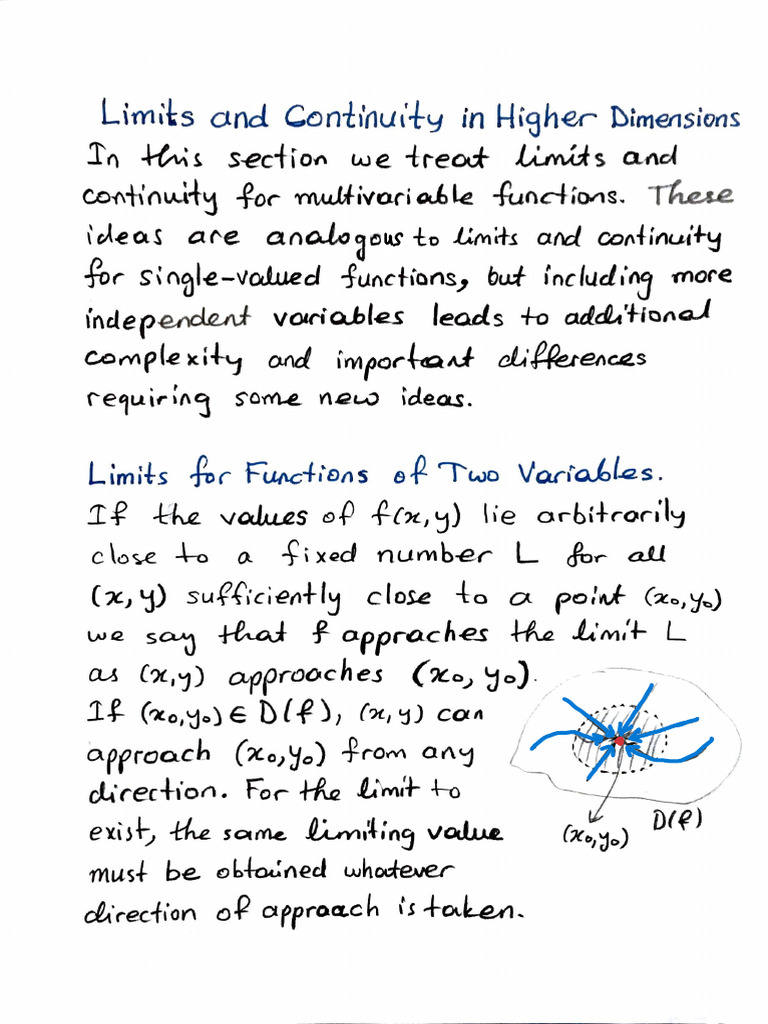 Limits and Continuity in Higher Dimensions
In this section we treat limits and
continuity for multivariable functions. These
ideas are analogous to limits and continuity
for single-valued functions, but including more
independent variables leads to additional
complexity and important differences
requiring some new ideas.
Limits for Functions of Two Variables.
If the values of f(x,y) lie arbitrarily
close to a fixed number L for all
(x,y) sufficiently close to a point (x₀,y₀)
we say that f appraches the limit L
as (x,y) approaches (x₀,y₀).
If (x₀,y₀) ∈ D(f), (x,y) can
approach (x₀,y₀) from any
direction. For the limit to
exist, the same limiting value
must be obtained whatever
direction of approach is taken.
(x₀,y₀)
D(f)